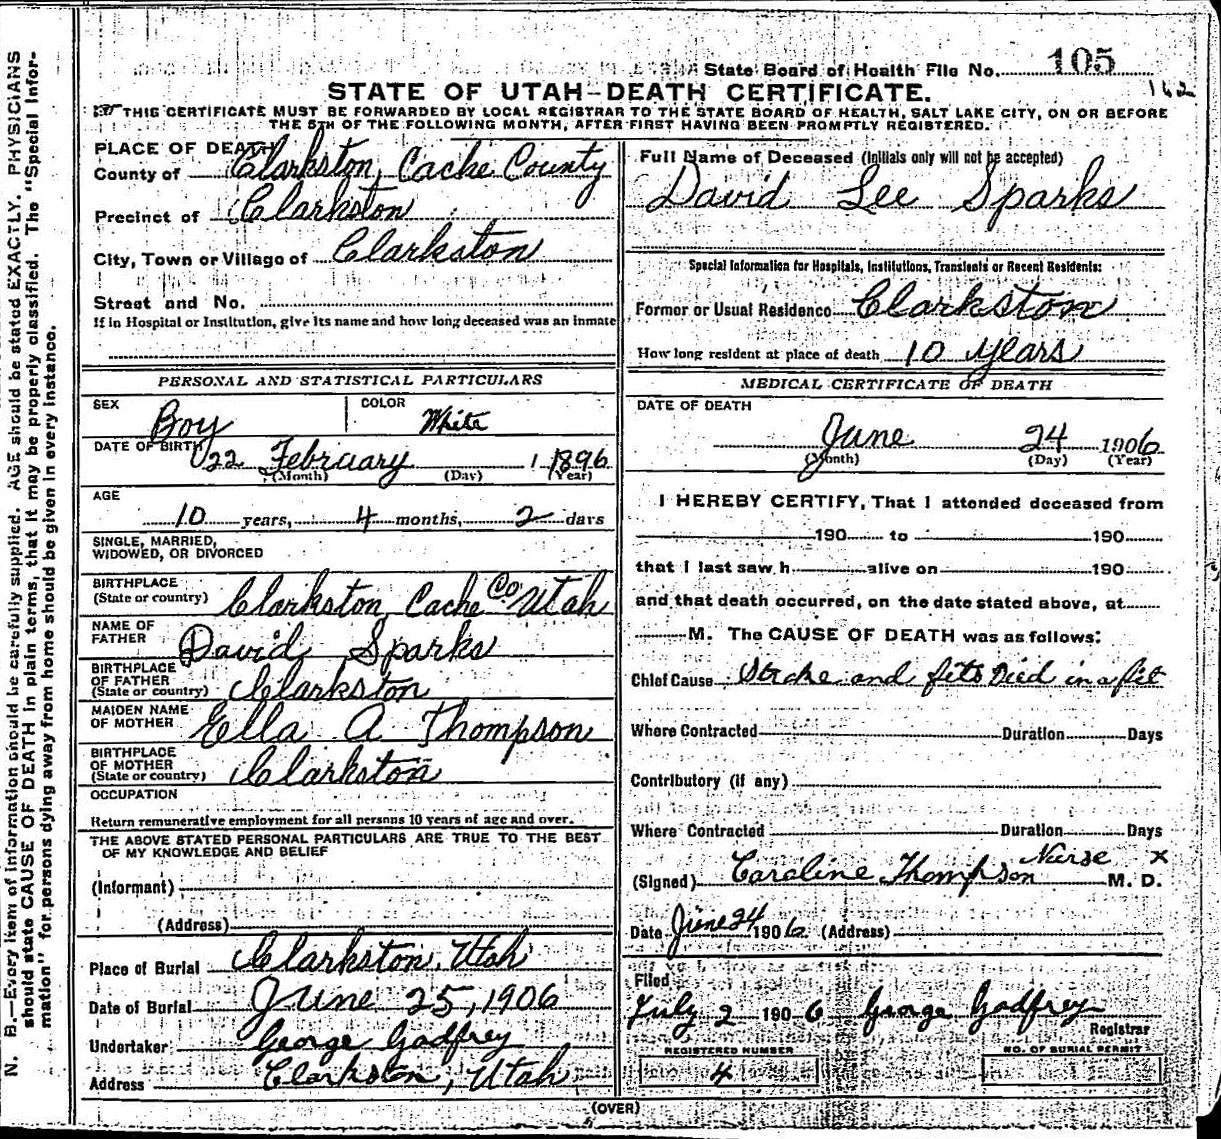 State Board of Health File No. 105
162
STATE OF UTAH—DEATH CERTIFICATE.
☞ THIS CERTIFICATE MUST BE FORWARDED BY LOCAL REGISTRAR TO THE STATE BOARD OF HEALTH, SALT LAKE CITY, ON OR BEFORE
THE 5TH OF THE FOLLOWING MONTH, AFTER FIRST HAVING BEEN PROMPTLY REGISTERED.
PLACE OF DEATH
County of Clarkston, Cache County
Precinct of Clarkston
City, Town or Village of Clarkston
Street and No.
If in Hospital or Institution, give its name and how long deceased was an inmate
PERSONAL AND STATISTICAL PARTICULARS
SEX Boy
COLOR White
DATE OF BIRTH 22 February 1 1896
(Month) (Day) (Year)
AGE
10 years, 4 months, 2 days
SINGLE, MARRIED,
WIDOWED, OR DIVORCED
BIRTHPLACE
(State or country) Clarkston Cache Co Utah
NAME OF
FATHER David Sparks
BIRTHPLACE
OF FATHER
(State or country) Clarkston
MAIDEN NAME
OF MOTHER Ella A Thompson
BIRTHPLACE
OF MOTHER
(State or country) Clarkston
OCCUPATION
Return remunerative employment for all persons 10 years of age and over.
THE ABOVE STATED PERSONAL PARTICULARS ARE TRUE TO THE BEST
OF MY KNOWLEDGE AND BELIEF
(Informant)
(Address)
Place of Burial Clarkston, Utah
Date of Burial June 25, 1906
Undertaker George Godfrey
Address Clarkston, Utah
Full Name of Deceased (Initials only will not be accepted)
David Lee Sparks
Special Information for Hospitals, Institutions, Transients or Recent Residents:
Former or Usual Residence Clarkston
How long resident at place of death 10 years
MEDICAL CERTIFICATE OF DEATH
DATE OF DEATH
June 24 1906
(Month) (Day) (Year)
I HEREBY CERTIFY, That I attended deceased from
190 to 190
that I last saw h alive on 190
and that death occurred, on the date stated above, at
M. The CAUSE OF DEATH was as follows:
Chief Cause Stroke and fits Died in a fit
Where Contracted Duration Days
Contributory (if any)
Where Contracted Duration Days
Nurse x
(Signed) Caroline Thompson M. D.
Date June 24 1906 (Address)
Filed
July 2 1906 George Godfrey
Registrar
REGISTERED NUMBER
4
NO. OF BURIAL PERMIT
(OVER)
N. B.—Every item of information should be carefully supplied. AGE should be stated EXACTLY. PHYSICIANS
should state CAUSE OF DEATH in plain terms, that it may be properly classified. The "Special Infor-
mation" for persons dying away from home should be given in every instance.